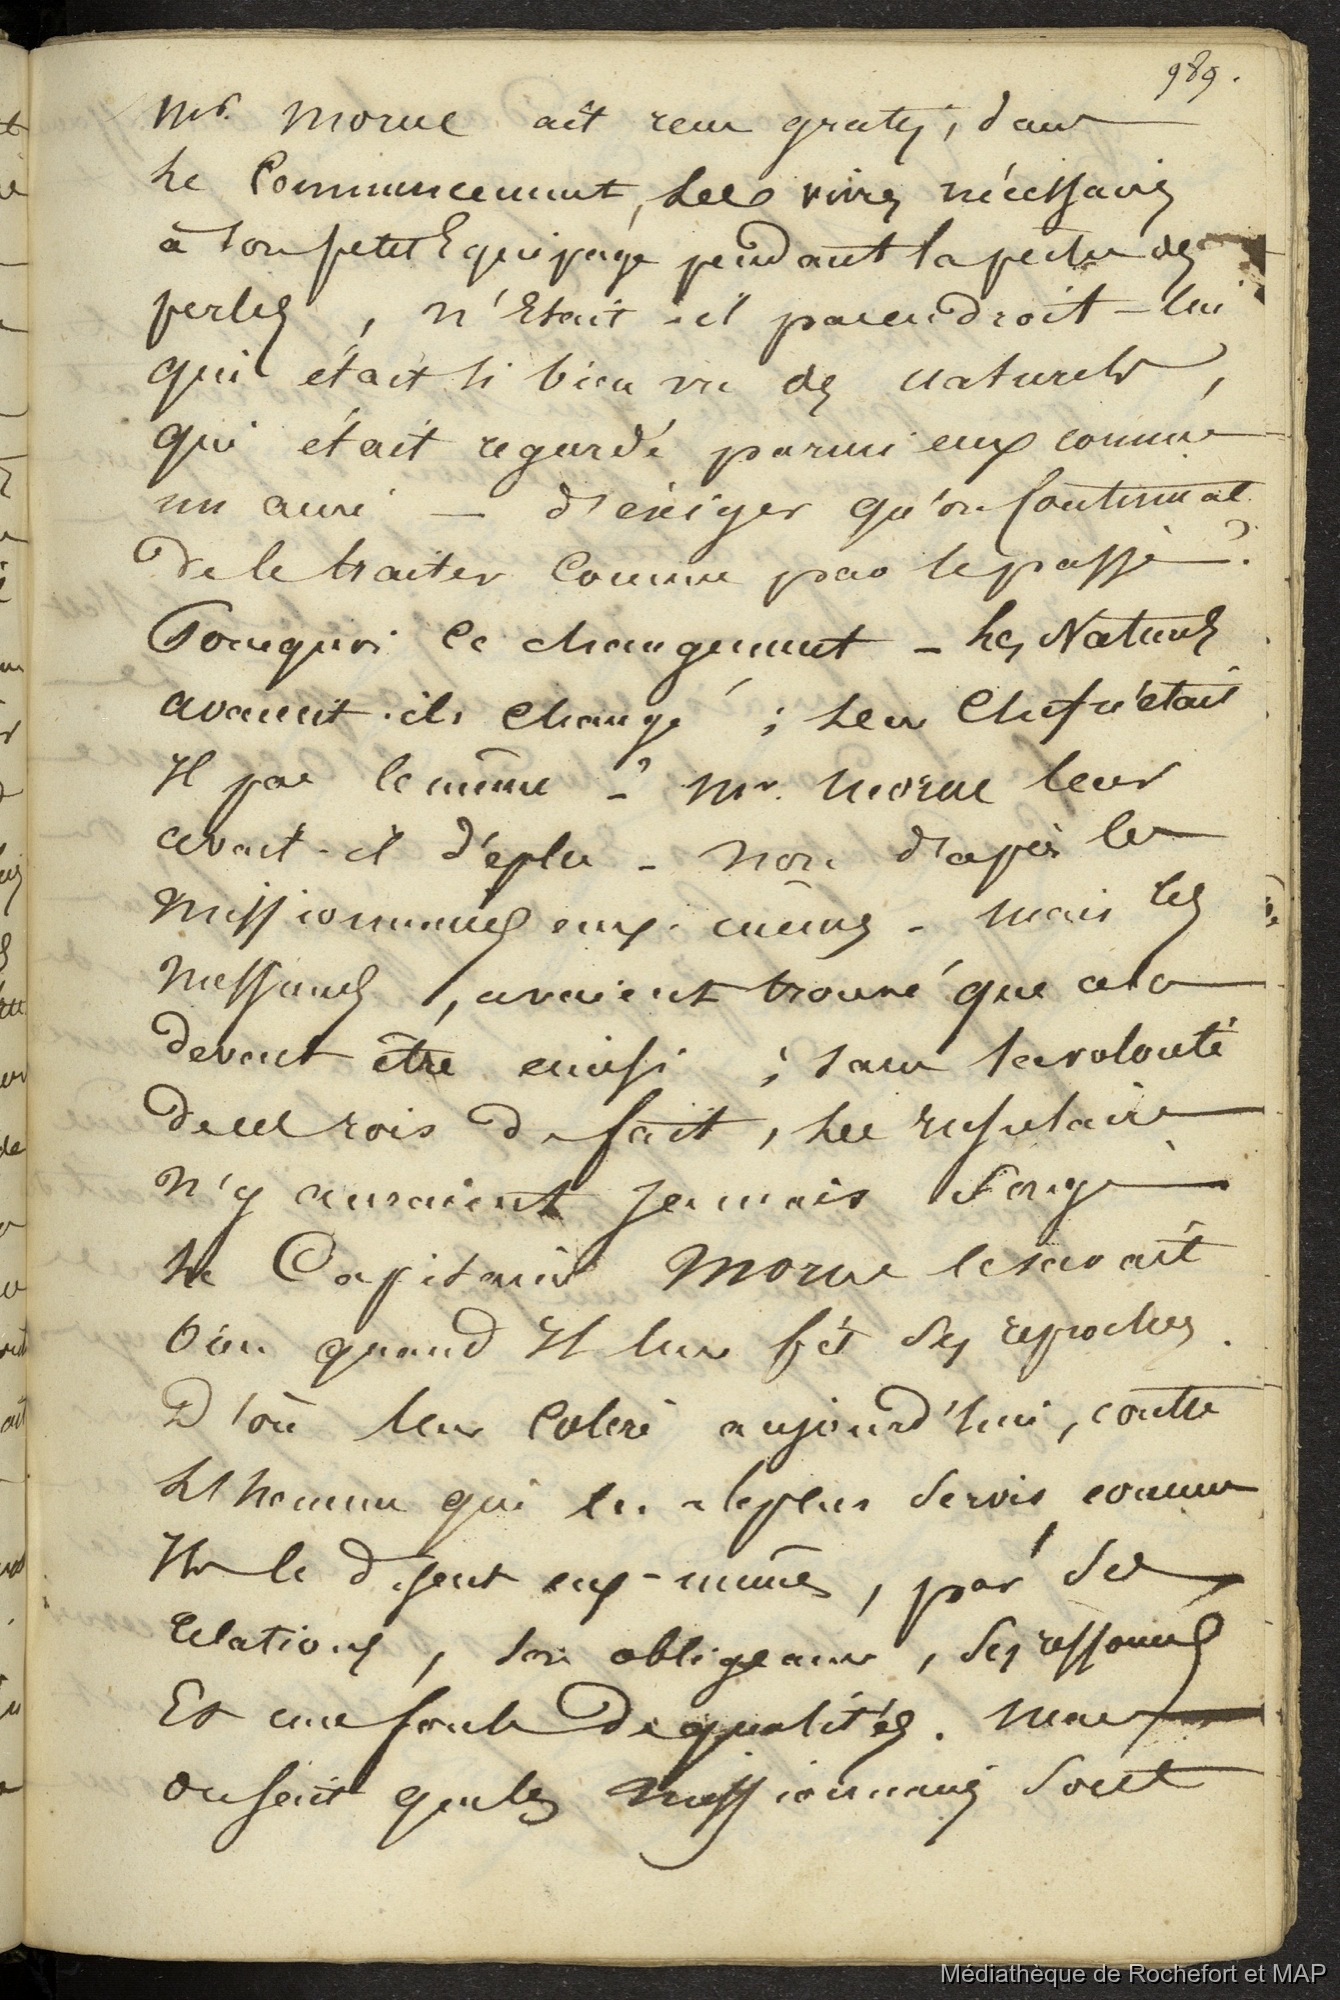 989.
Mr. Morue ait reçu gratis, dans
Le Commencement, Les vivres nécessaires
à son petit Equipage pendant la pêche des
perles, n'Etait-il pas en droit - lui
qui était si bien vu des naturels,
qui était regardé parmi eux comme
un ami - d'éxiger qu'on Continuat
de le traiter Comme par le passé ?
Pourquoi Ce changement - Les Naturels
avaient-ils Changé ; Leur Chef n'était
Il pas le même ? - Mr. Morue leur
avait-il déplu - non d'après les
Missionnaires eux-mêmes - mais les
Messieurs, avaient trouvé que cela
devait être ainsi ; sans la volonté
de ces rois de fait, Les
n'y auraient jamais Songé
Le Capitaine Morue le savait
bien quand Il leur fit des reproches.
D'où leur Colère aujourd'hui, contre
L'homme qui les a le plus Servis, comme
Ils le disent eux-mêmes, par Ses
relations, son obligeance, Ses ressources
Et une foule de qualités. Mais
on sait que les Missionnaires Sont
Médiathèque de Rochefort et MAP